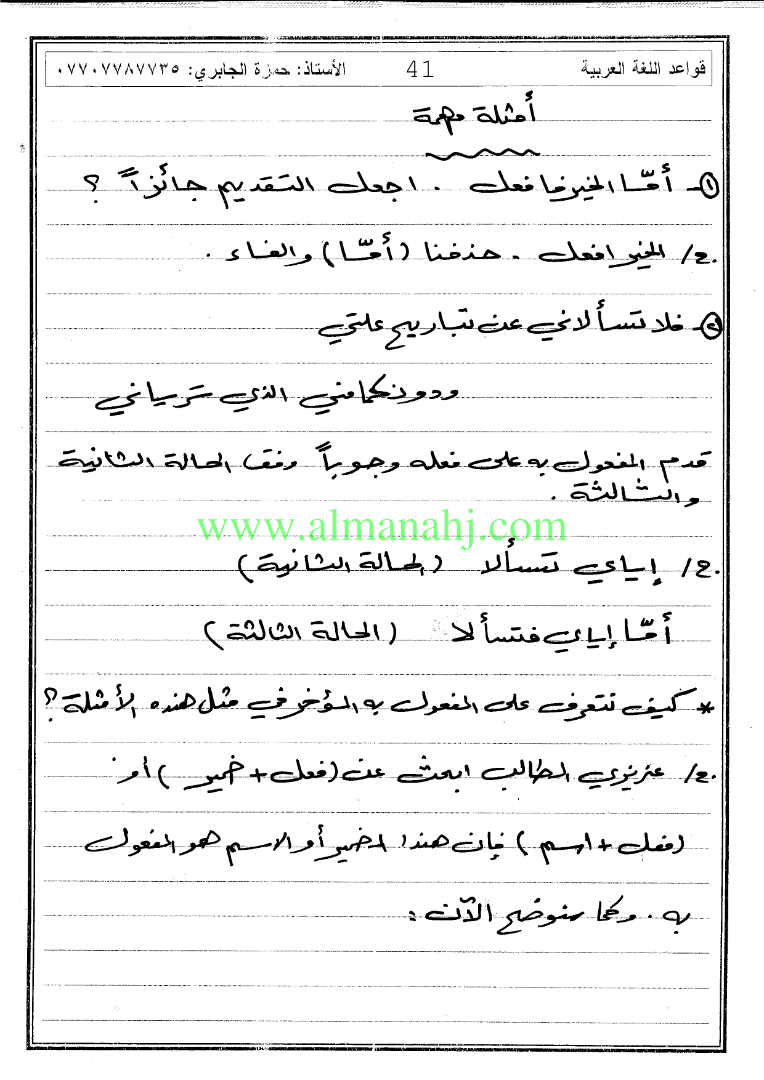 قواعد اللغة العربية 41 الأستاذ: حمزة الجابري: ٠٧٧٠٧٧٨٧٧٣٥
أمثلة مهمة
١- أمّا الخير فافعل . اجعل التقديم جائزاً ؟
ج/ الخير افعل . حذفنا (أمّا) والفاء .
٢- فلا تسألاني عن تباريح علتي
ودونكما مني الذي تريانِي
قدم المفعول به على فعله وجوباً وفق الحالة الثانية
والثالثة .
www.almanahj.com
ج/ إياي تسألا (الحالة الثانية)
أمّا إياي فتسألا (الحالة الثالثة)
* كيف نتعرف على المفعول به المؤخر في مثل هذه الأمثلة ؟
ج/ عزيزي الطالب ابحث عن (فعل + ضمير) أو
(فعل + اسم) فإن هذا الضمير أو الاسم هو المفعول
به . وكما سنوضح الآن :